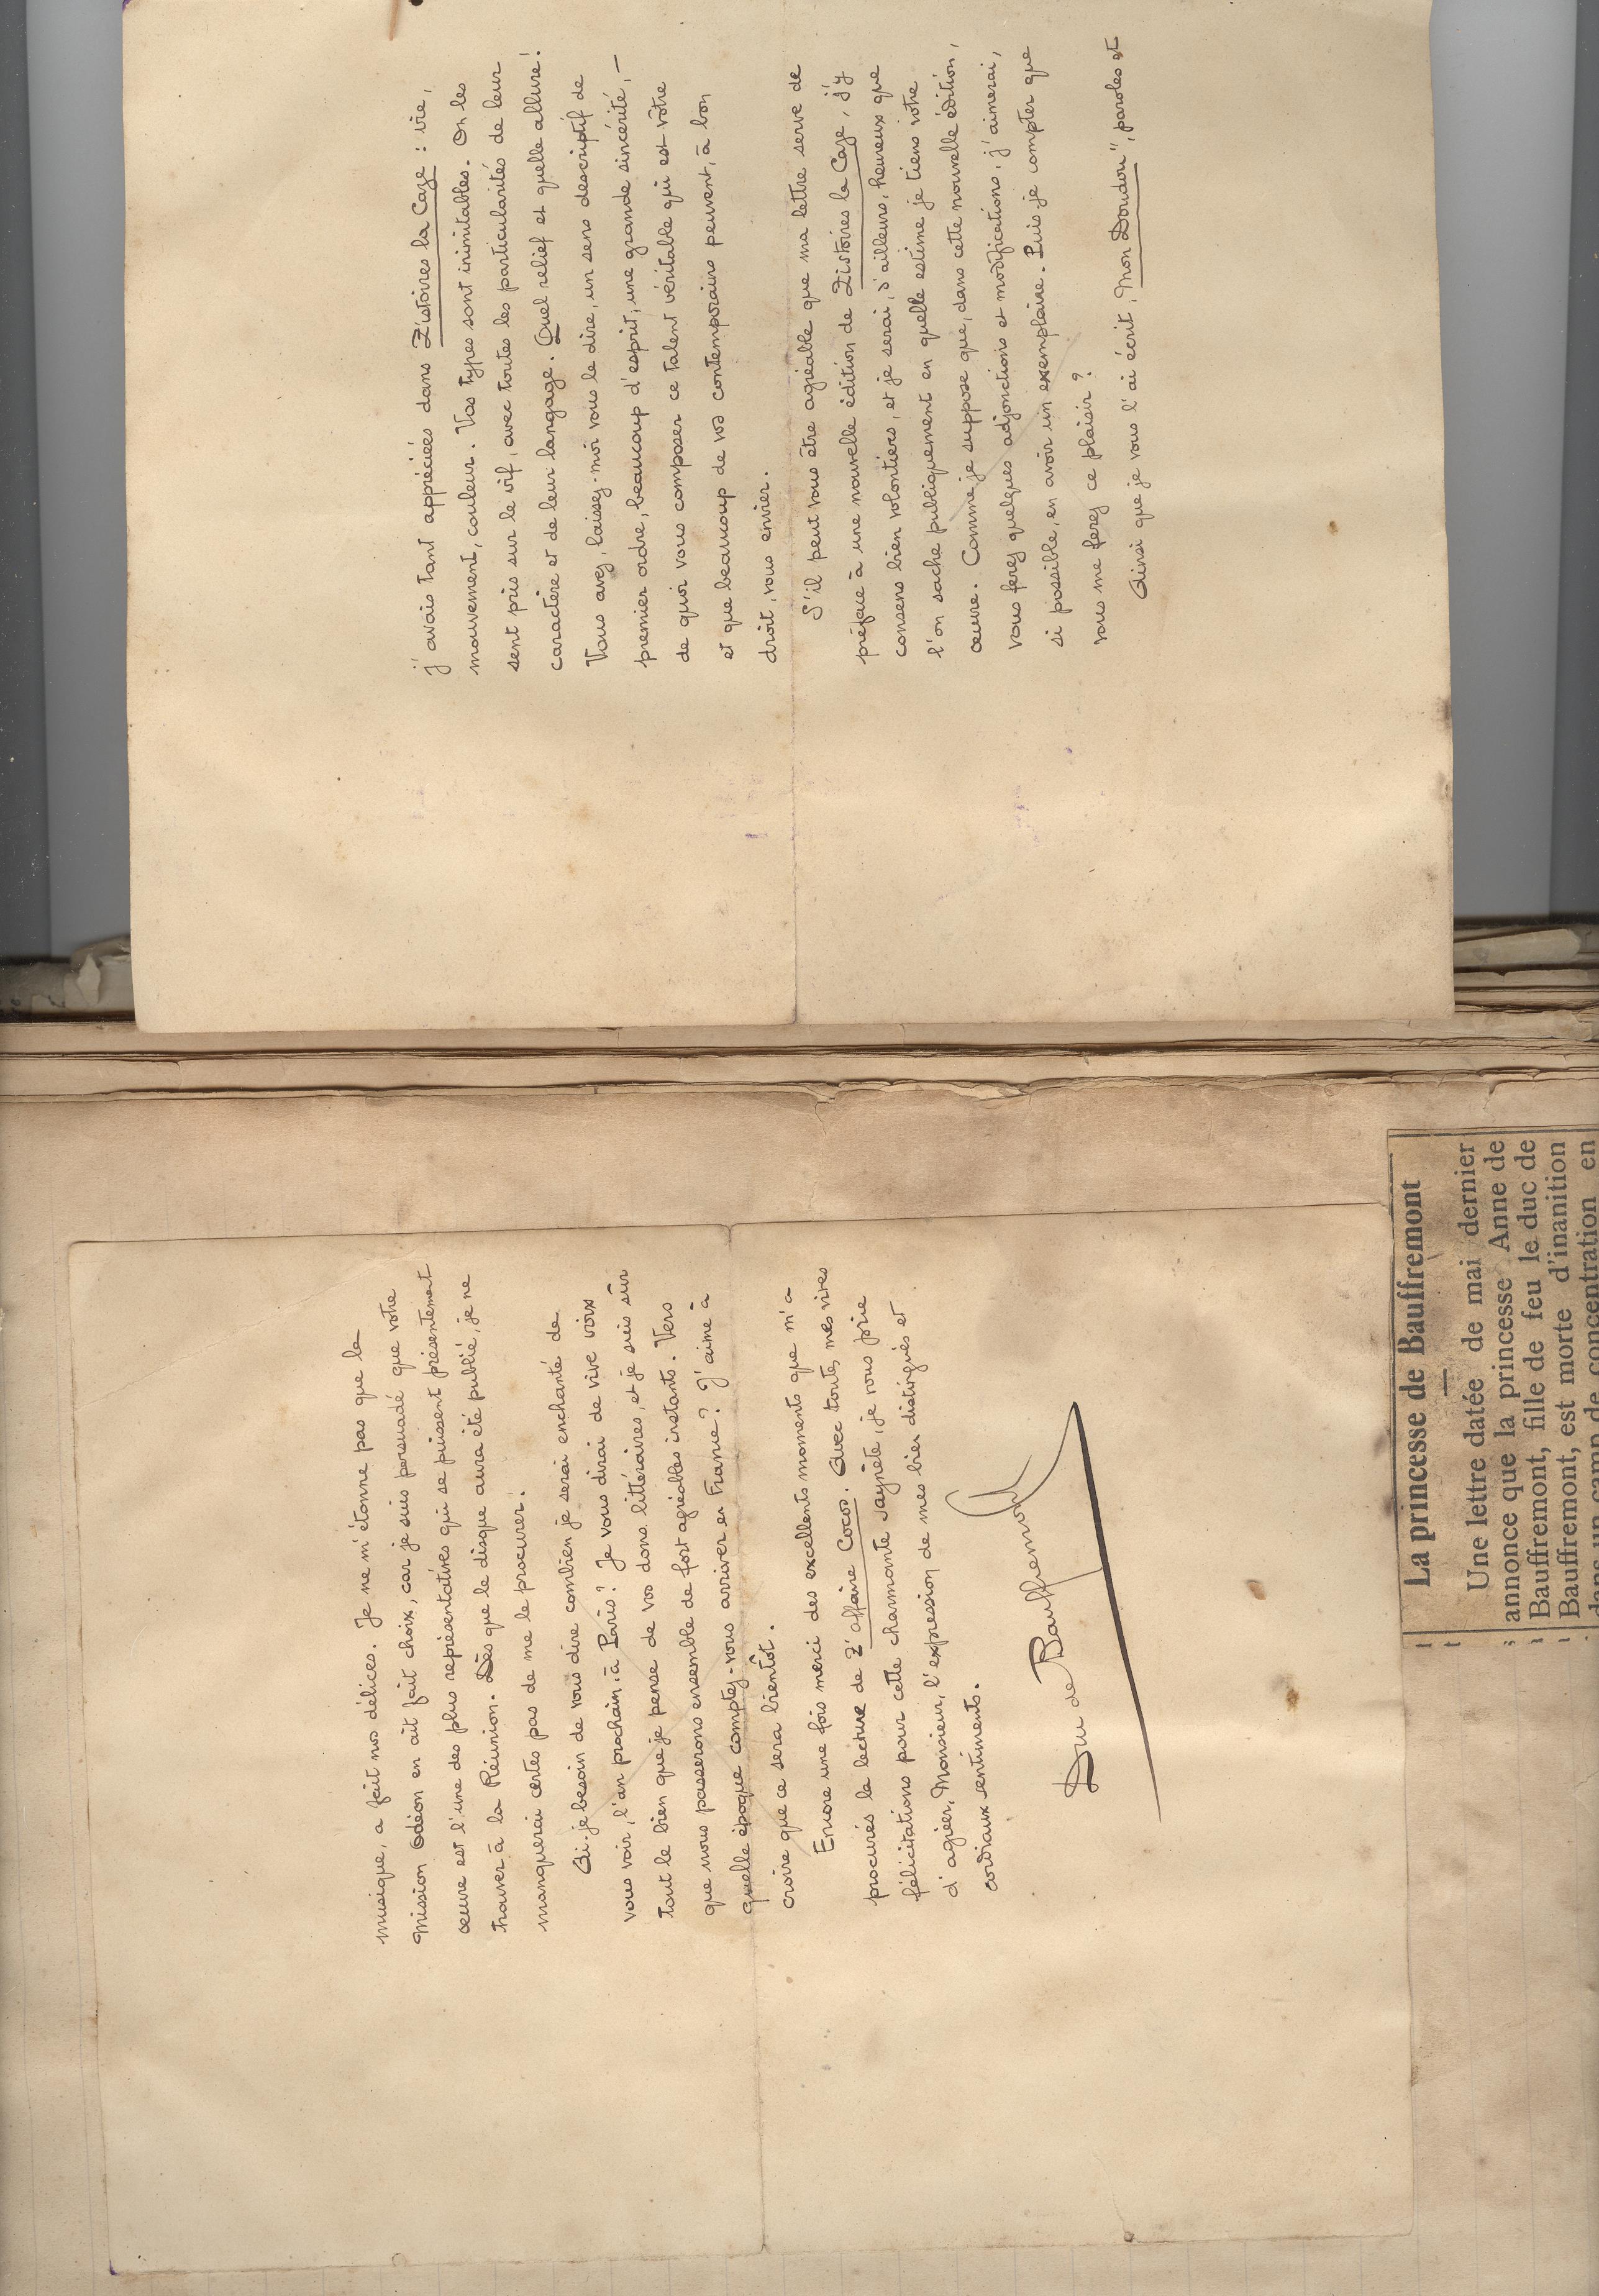 j'avais tant appréciées dans Z'istoires la Caze : vie,
mouvement, couleur. Vos types sont inimitables. On les
sent pris sur le vif, avec toutes les particularités de leur
caractère et de leur langage. Quel relief et quelle allure!
Vous avez, laissez-moi vous le dire, un sens descriptif de
premier ordre, beaucoup d'esprit, une grande sincérité, —
de quoi vous composer ce talent véritable qui est vôtre
et que beaucoup de vos contemporains peuvent, à bon
droit, vous envier.
S'il peut vous être agréable que ma lettre serve de
préface à une nouvelle édition de Zistoires la Caze, j'y
consens bien volontiers, et je serai, d'ailleurs, heureux que
l'on sache publiquement en quelle estime je tiens votre
œuvre. Comme je suppose que, dans cette nouvelle édition,
vous ferez quelques adjonctions et modifications, j'aimerai,
si possible, en avoir un exemplaire. Puis-je compter que
vous me ferez ce plaisir ?
Ainsi que je vous l'ai écrit, "Mon Doudou", paroles et
musique, a fait nos délices. Je ne m'étonne pas que la
mission Odéon en ait fait choix, car je suis persuadé que votre
œuvre est l'une des plus représentatives qui se puissent présentement
trouver à la Réunion. Dès que le disque aura été publié, je ne
manquerai certes pas de me le procurer.
Ai-je besoin de vous dire combien je serai enchanté de
vous voir, l'an prochain, à Paris ? Je vous dirai de vive voix
tout le bien que je pense de vos dons littéraires, et je suis sûr
que nous passerons ensemble de fort agréables instants. Vers
quelle époque comptez-vous arriver en France ? J'aime à
croire que ce sera bientôt.
Encore une fois merci des excellents moments que m'a
procurés la lecture de Z'affaire Cocos. Avec toutes mes vives
félicitations pour cette charmante saynète, je vous prie
d'agréer, Monsieur, l'expression de mes bien distingués et
cordiaux sentiments.
Duc de Bauffremont
La princesse de Bauffremont
Une lettre datée de mai dernier
annonce que la princesse Anne de
Bauffremont, fille de feu le duc de
Bauffremont, est morte d'inanition
dans un camp de concentration en